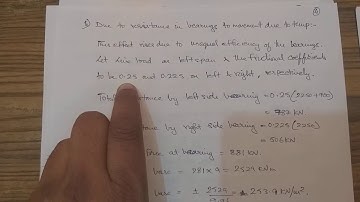 ⑧
Due to resistance in bearings to movement due to temp:-
This effect rises due to unequal efficiency of the bearings.
Let live load on left span & the frictional coefficients
to be 0.25 and 0.225 on left & right, respectively.
Total resistance by left side bearing = 0.25(2250+
by right side bearing = 0.225(2250)
= 506 KN
at bearing = 881 KN
= 281 × 9 = 2529 KNm
= ± 2529 = 253.9 KN/m².